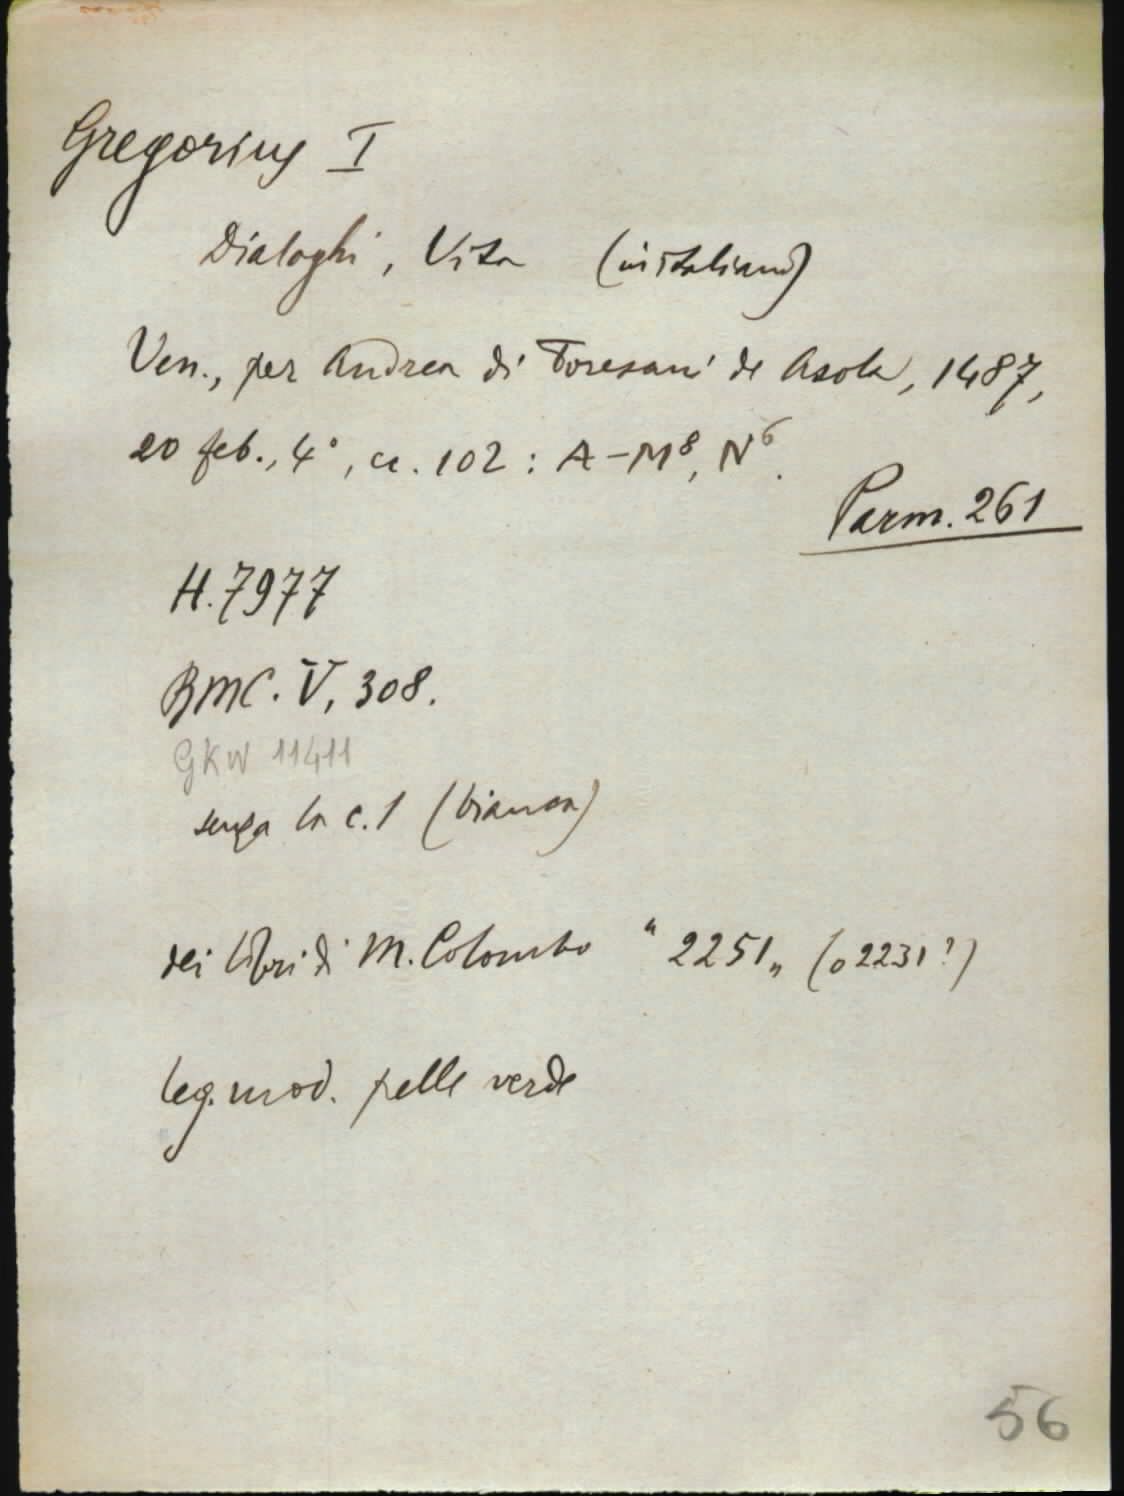 Gregorius I
Dialoghi, Vita (in italiano)
Ven., per Andrea di Toresani de Asola, 1487,
20 feb., 4°, cc. 102 : A-M⁸, N⁶.
Parm. 261
H. 7977
BMC. V, 308.
GKW 11411
senza la c. 1 (bianca)
dei libri di M. Colombo " 2251 „ (o 2231?)
leg. mod. pelle verde
56